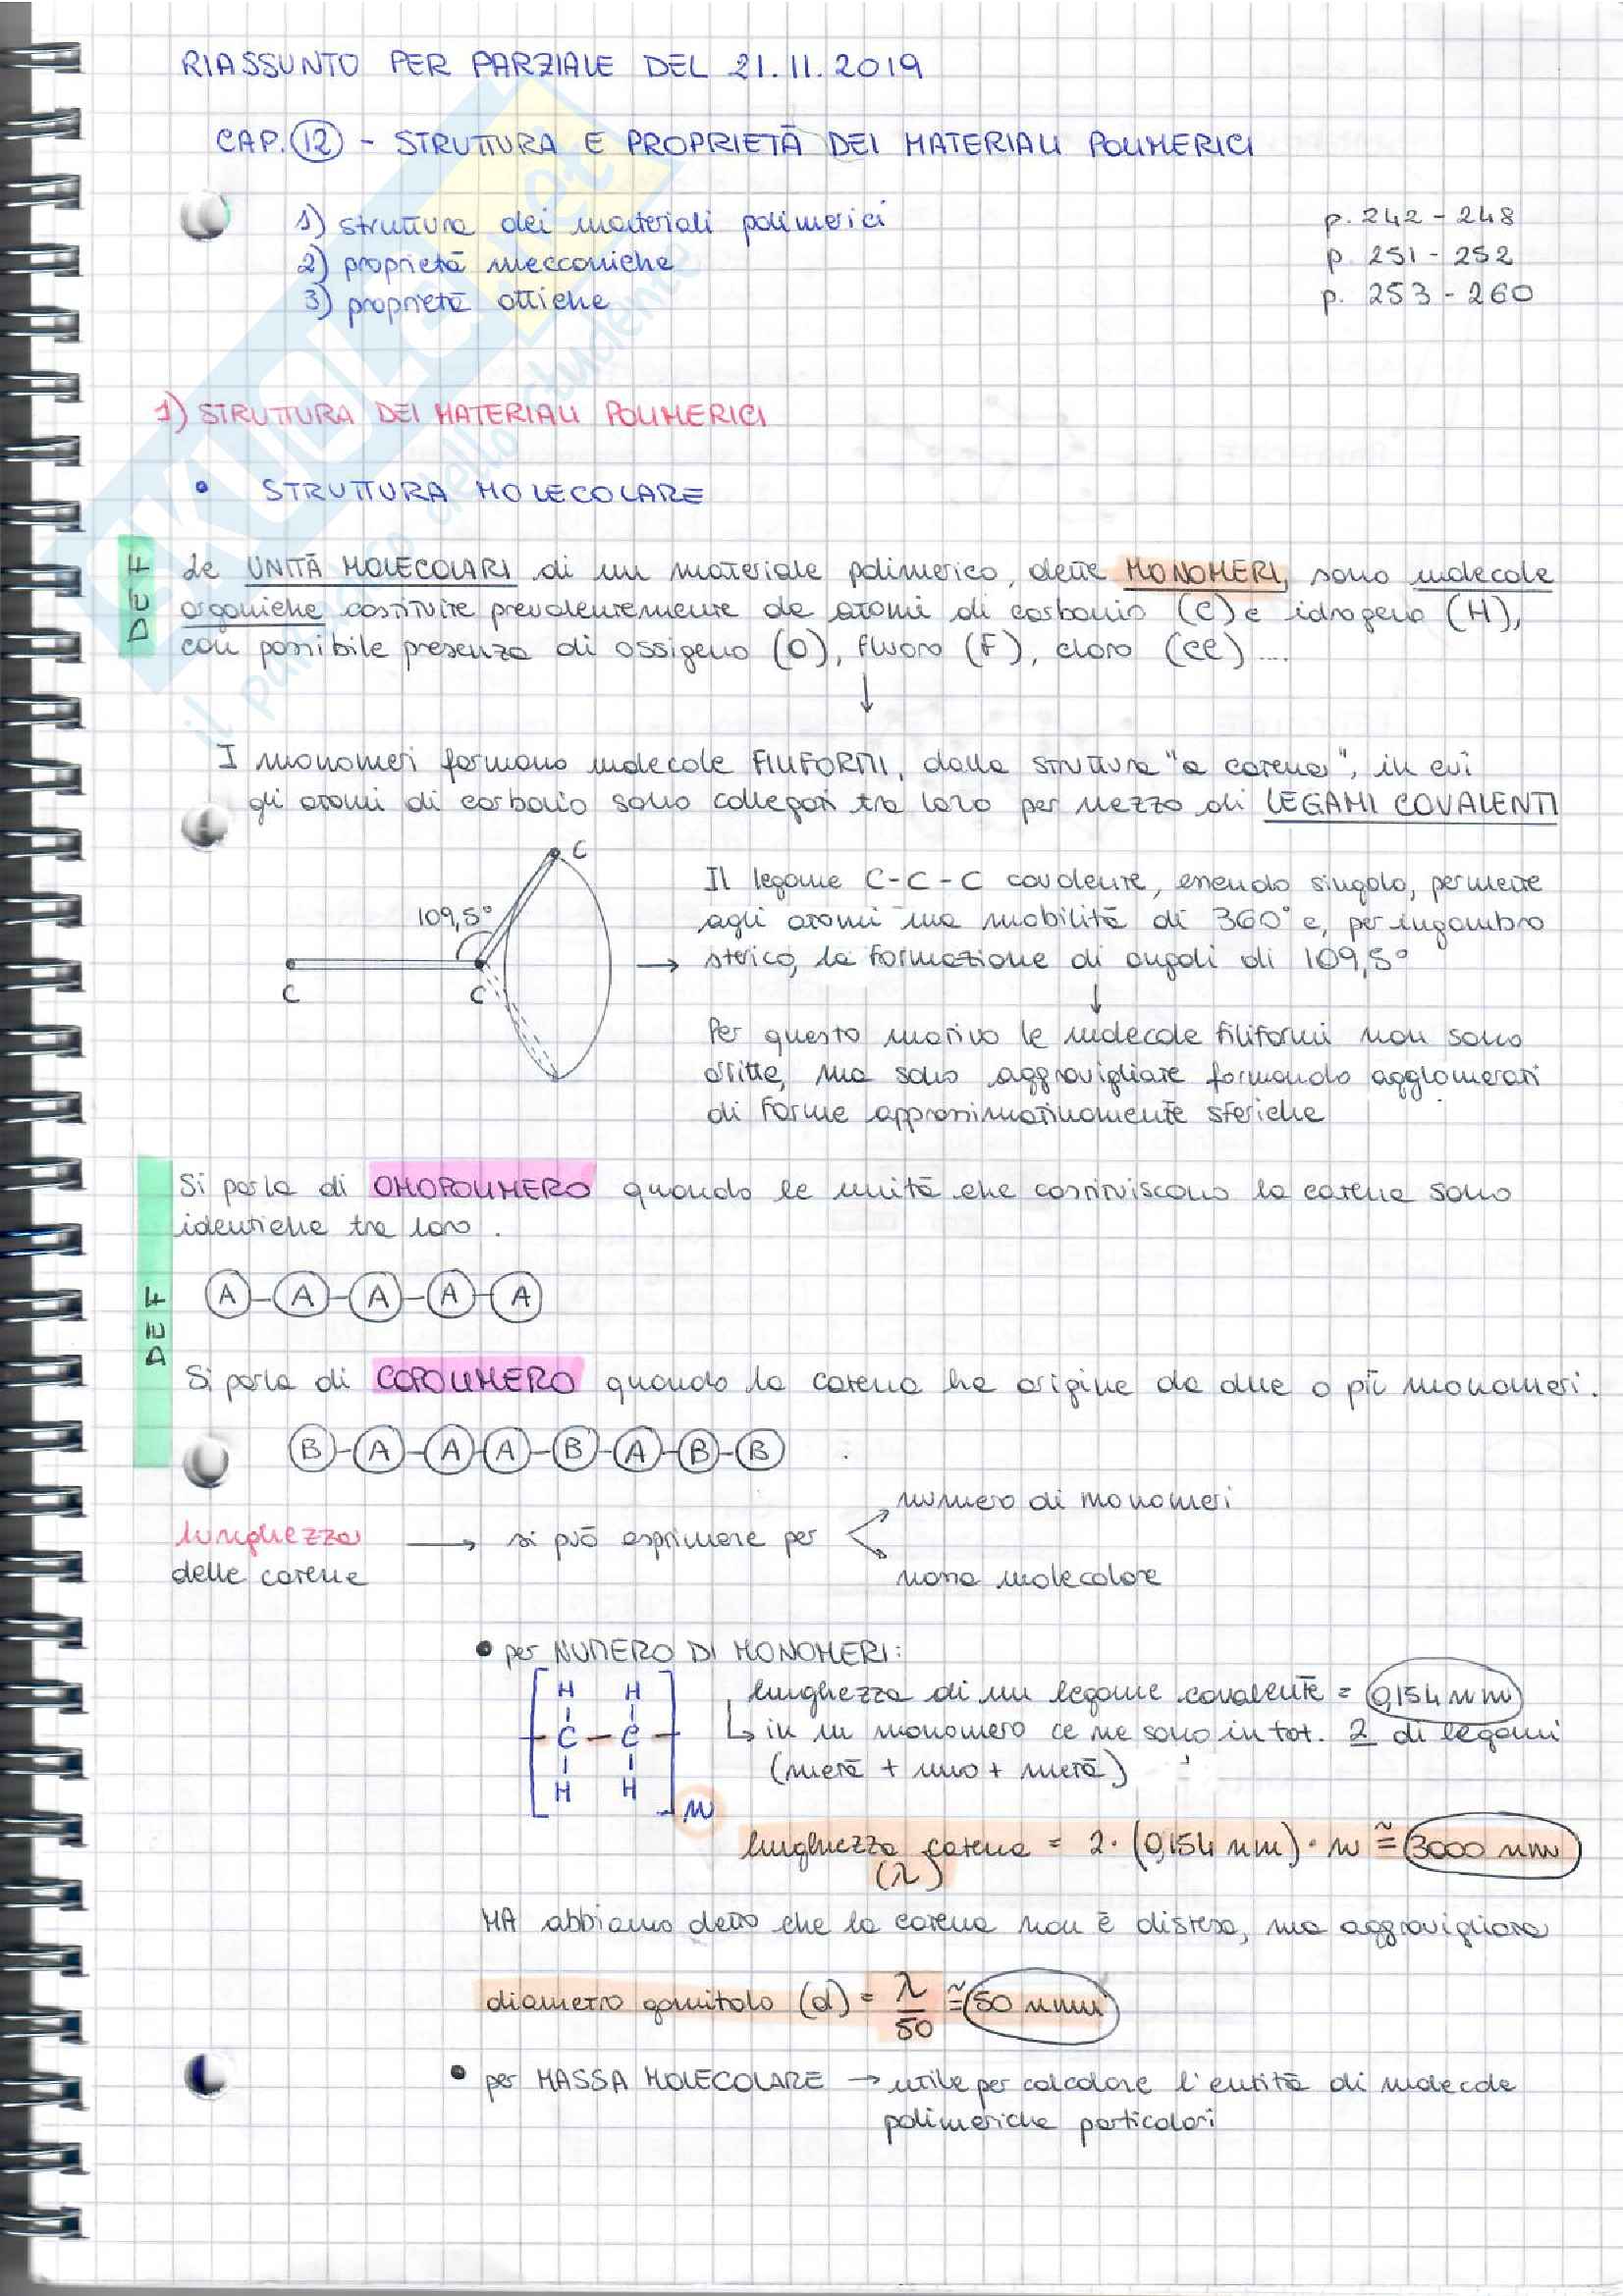 RIASSUNTO PER PARZIALE DEL 21.11.2019
CAP. 12 - STRUTTURA E PROPRIETÀ DEI MATERIALI POLIMERICI
1) struttura dei materiali polimerici p. 242 - 248
2) proprietà meccaniche p 251 - 252
3) proprietà ottiche p. 253 - 260
1) STRUTTURA DEI MATERIALI POLIMERICI
• STRUTTURA MOLECOLARE
DEF
Le UNITÀ MOLECOLARI di un materiale polimerico, dette MONOMERI, sono molecole
organiche costituite prevalentemente da atomi di carbonio (C) e idrogeno (H),
con possibile presenza di ossigeno (O), fluoro (F), cloro (Cl)....
↓
I monomeri formano molecole FILIFORMI, dalla struttura "a catena", in cui
gli atomi di carbonio sono collegati tra loro per mezzo di LEGAMI COVALENTI
C
109,5°
C C
Il legame C-C-C covalente, essendo singolo, permette
agli atomi una mobilità di 360° e, per ingombro
→ sterico, la formazione di angoli di 109,5°
↓
Per questo motivo le molecole filiformi non sono
dritte, ma sono aggrovigliate formando agglomerati
di forme approssimativamente sferiche
DEF
Si parla di OMOPOLIMERO quando le unità che costituiscono la catena sono
identiche tra loro.
A-A-A-A-A
Si parla di COPOLIMERO quando la catena ha origine da due o più monomeri.
B-A-A-A-B-A-B-B
lunghezza → si può esprimere per
delle catene
numero di monomeri
massa molecolare
• per NUMERO DI MONOMERI:
H H
-C-C-
H H
n
lunghezza di un legame covalente = 0,154 nm
↳ in un monomero ce ne sono in tot. 2 di legami
(metà + uno + metà)
lunghezza catena = 2·(0,154 nm)·n ≅ 3000 nm
(λ)
MA abbiamo detto che la catena non è distesa, ma aggrovigliata
diametro gomitolo (d) = λ/50 ≅ 50 nm
• per MASSA MOLECOLARE → utile per calcolare l'entità di molecole
polimeriche particolari
SKUOLA.net